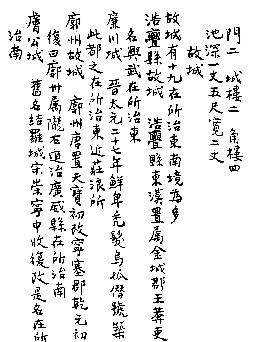 門二　城樓二　角樓四
池深一丈五尺寬二丈
故城
故城有十九在所治東南境為多
浩亹縣故城　浩亹縣東漢置属金城郡王莽更
名興武在所治東
廉川城　晉太元二十七年鮮卑禿髮烏孤僭號築
此都之在所治東近莊浪所
廓州故城　廓州唐置天寶初改寧塞郡乾元初
復曰廓卅属隴右道治廣威縣在所治南
膚公城　舊名結羅城宋崇寧中收復改是名在所
治南